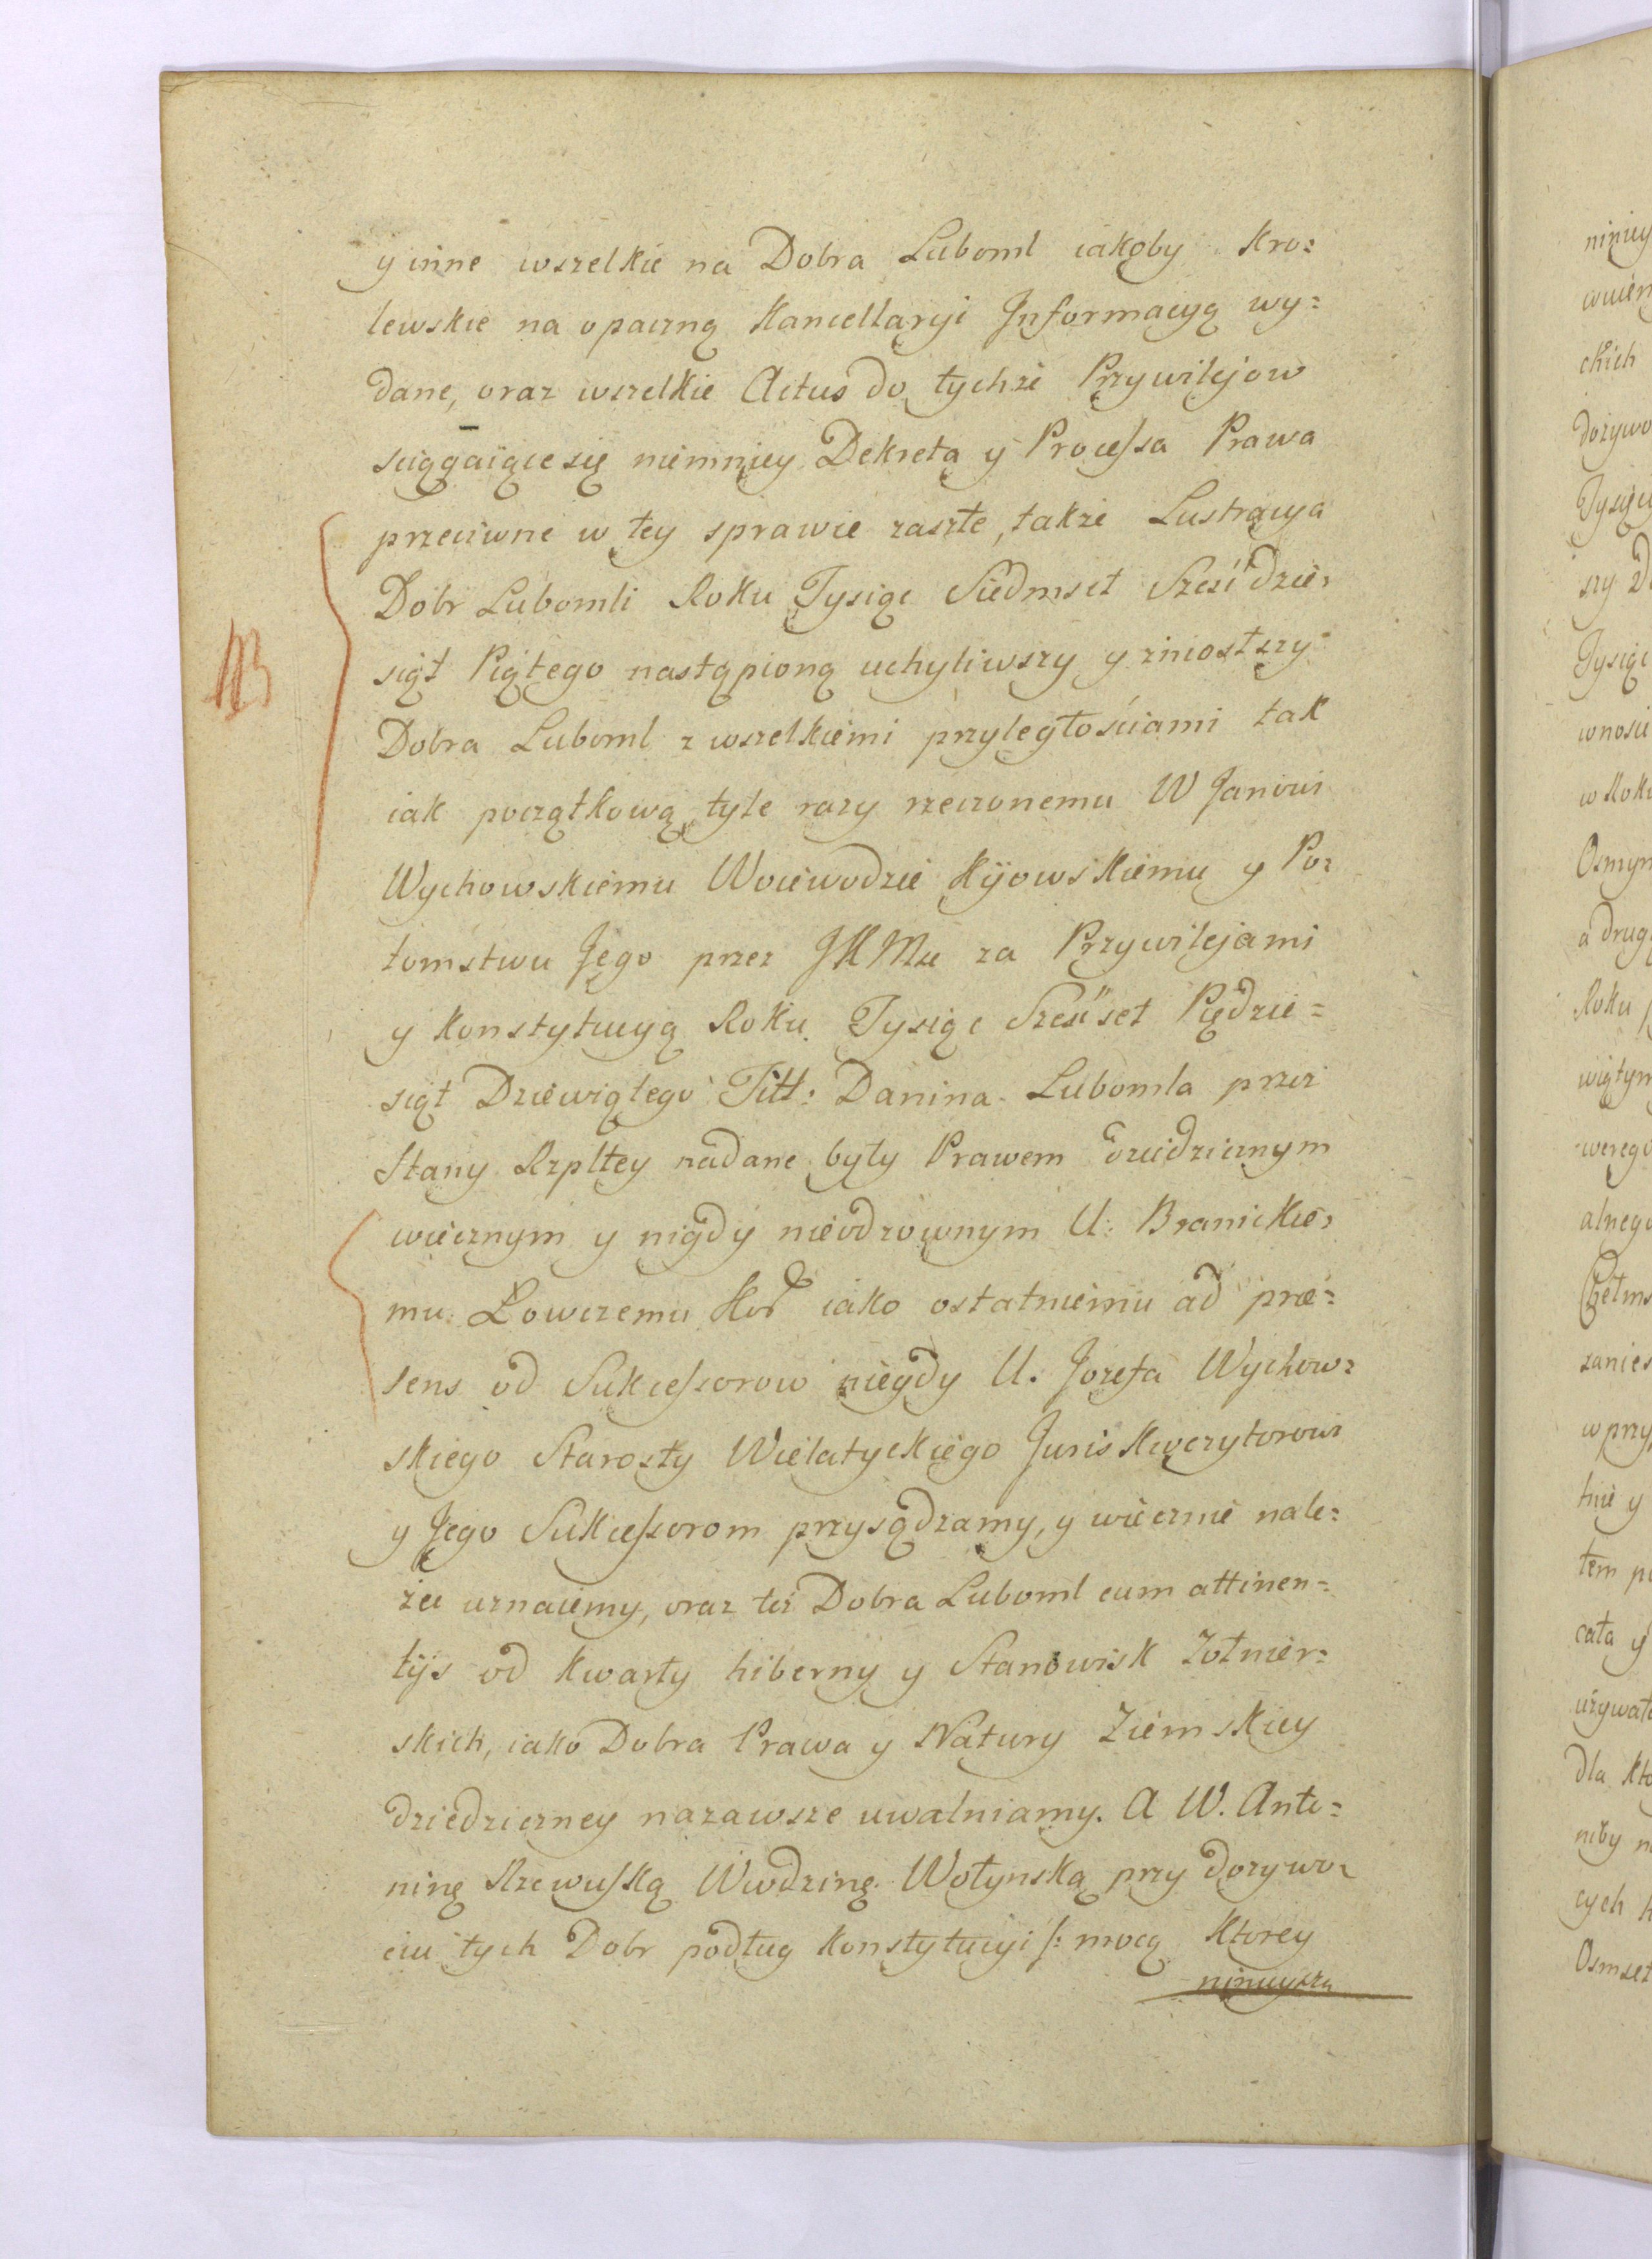 y inne wszelkie na Dobra Luboml iakoby Kro=
lewskie na opaczną Kancellaryi Jnformacyą wy=
dane, oraz wszelkie Actus do tychże Przywilejow
sciągaiące się niemniey Dekreta y Processa Prawa
przeciwne w tey sprawie zaszłe, takze Lustracya
Dobr Lubomli Roku Tysiąc Siedmset Sześćdzie=
siąt Piątego nastąpioną uchyliwszy y zniosłszy
NB
Dobra Luboml z wszelkiemi przyległościami tak
iak początkową tyle razy rzeczonemu W Janowi
Wychowskiemu Woiewodzie Kijowskiemu y Po=
tomstwu Jego przez JKMu za Przywilejami
y Konstytucyą Roku Tysiąc Sześćset Pięcdzie=
siąt Dziewiątego Titt: Danina Lubomla przez
Stany Rzpltey nadane były Prawem dziedzicznym
wiecznym y nigdy nieodzownym U: Branickie=
mu Łowczemu Kor iako ostatniemu ad præ=
sens od Sukcessorow niegdy U. Jozefa Wychow=
skiego Starosty Wielatyckiego Juris Kwezytorowi
y Jego Sukcessorom przysądzamy, y wiecznie nale=
żec uznaiemy, oraz też Dobra Luboml cum attinen=
tijs od Kwarty hiberny y Stanowisk Zołnier=
skich, iako Dobra Prawa y Natury Ziemskiey
dziedziczney nazawsze uwalniamy. A W. Anto=
ninę Rzewuską Wwdzinę Wołynską przy dozywo=
ciu tych Dobr podług Konstytucyi /: mocą Ktorey
ninieysza